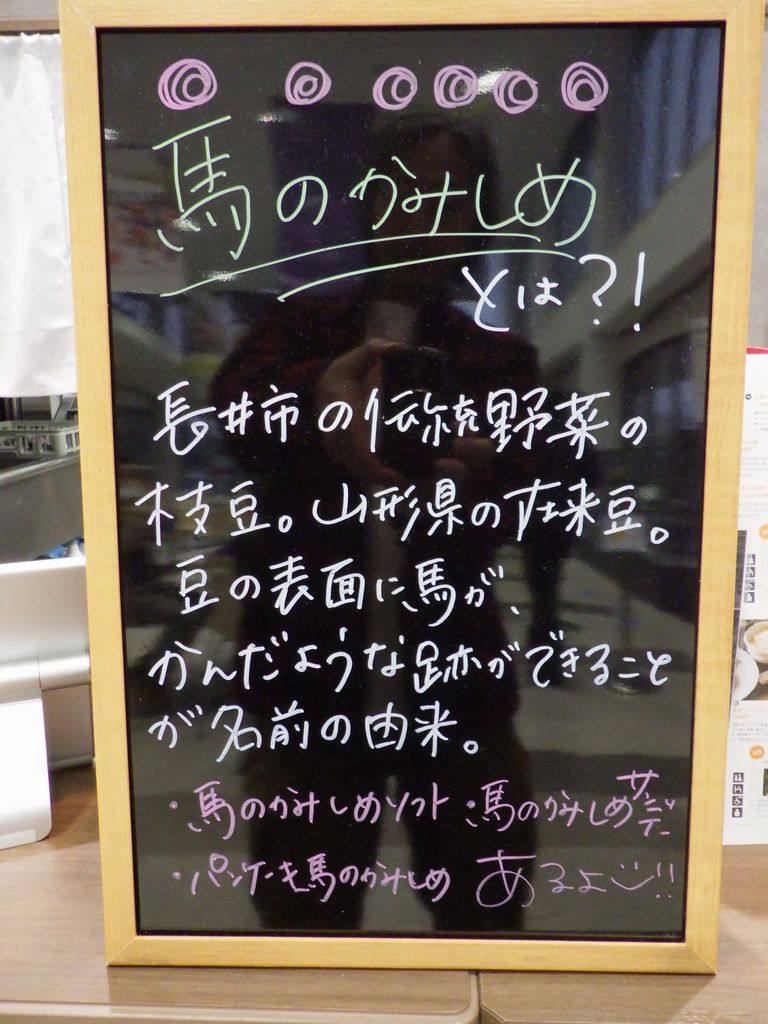 馬のかみしめ
とは?!
長井市の伝統野菜の
枝豆。山形県の在来豆。
豆の表面に馬が、
かんだような跡ができること
が名前の由来。
・馬のかみしめソフト ・馬のかみしめサンデー
・パンケーキ馬のかみしめ あるよ!!